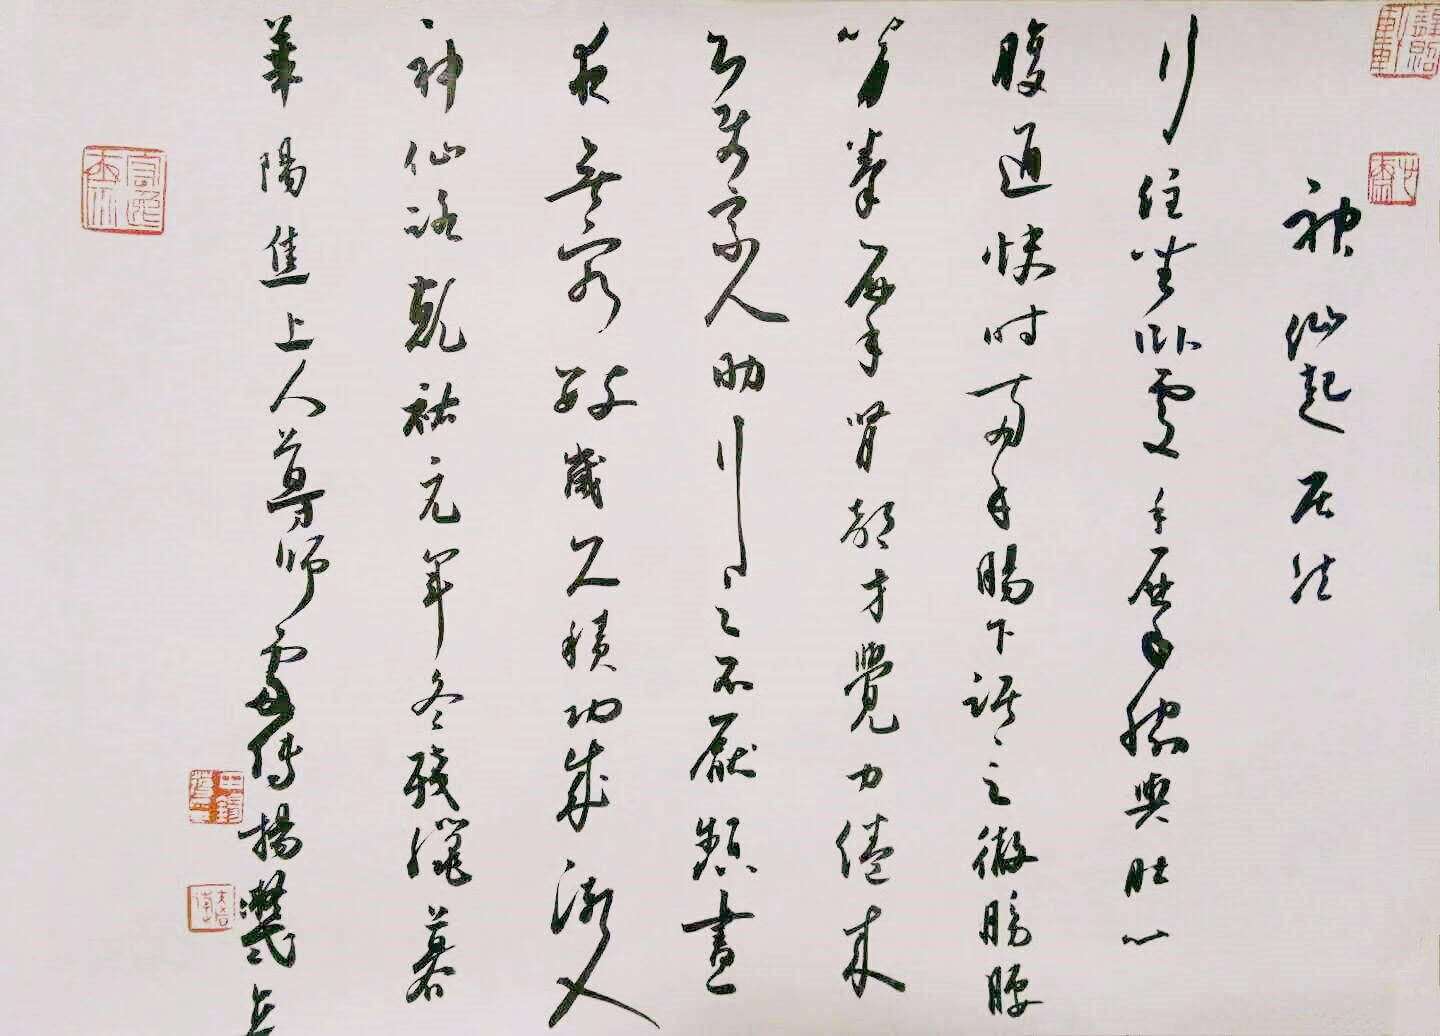 神仙起居法
行住坐卧處手摩脅與肚心
腹通快時兩手腸下踞之徹膀腰
背拳摩腎部才覺力倦來
即使家人助行之不厭頻晝
夜無窮數歲久積功成漸入
神仙路乾祐元年冬殘臘暮
華陽焦上人尊師處傳楊凝式